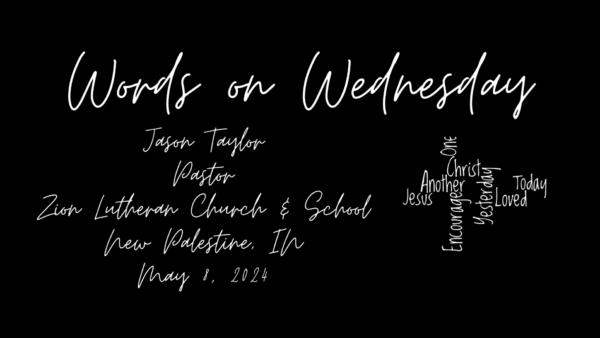 Words on Wednesday
Jason Taylor
Pastor
Zion Lutheran Church & School
New Palestine, IN
May 8, 2024
One
Christ
Another
Jesus
Encourage
Yesterday
Today
Loved